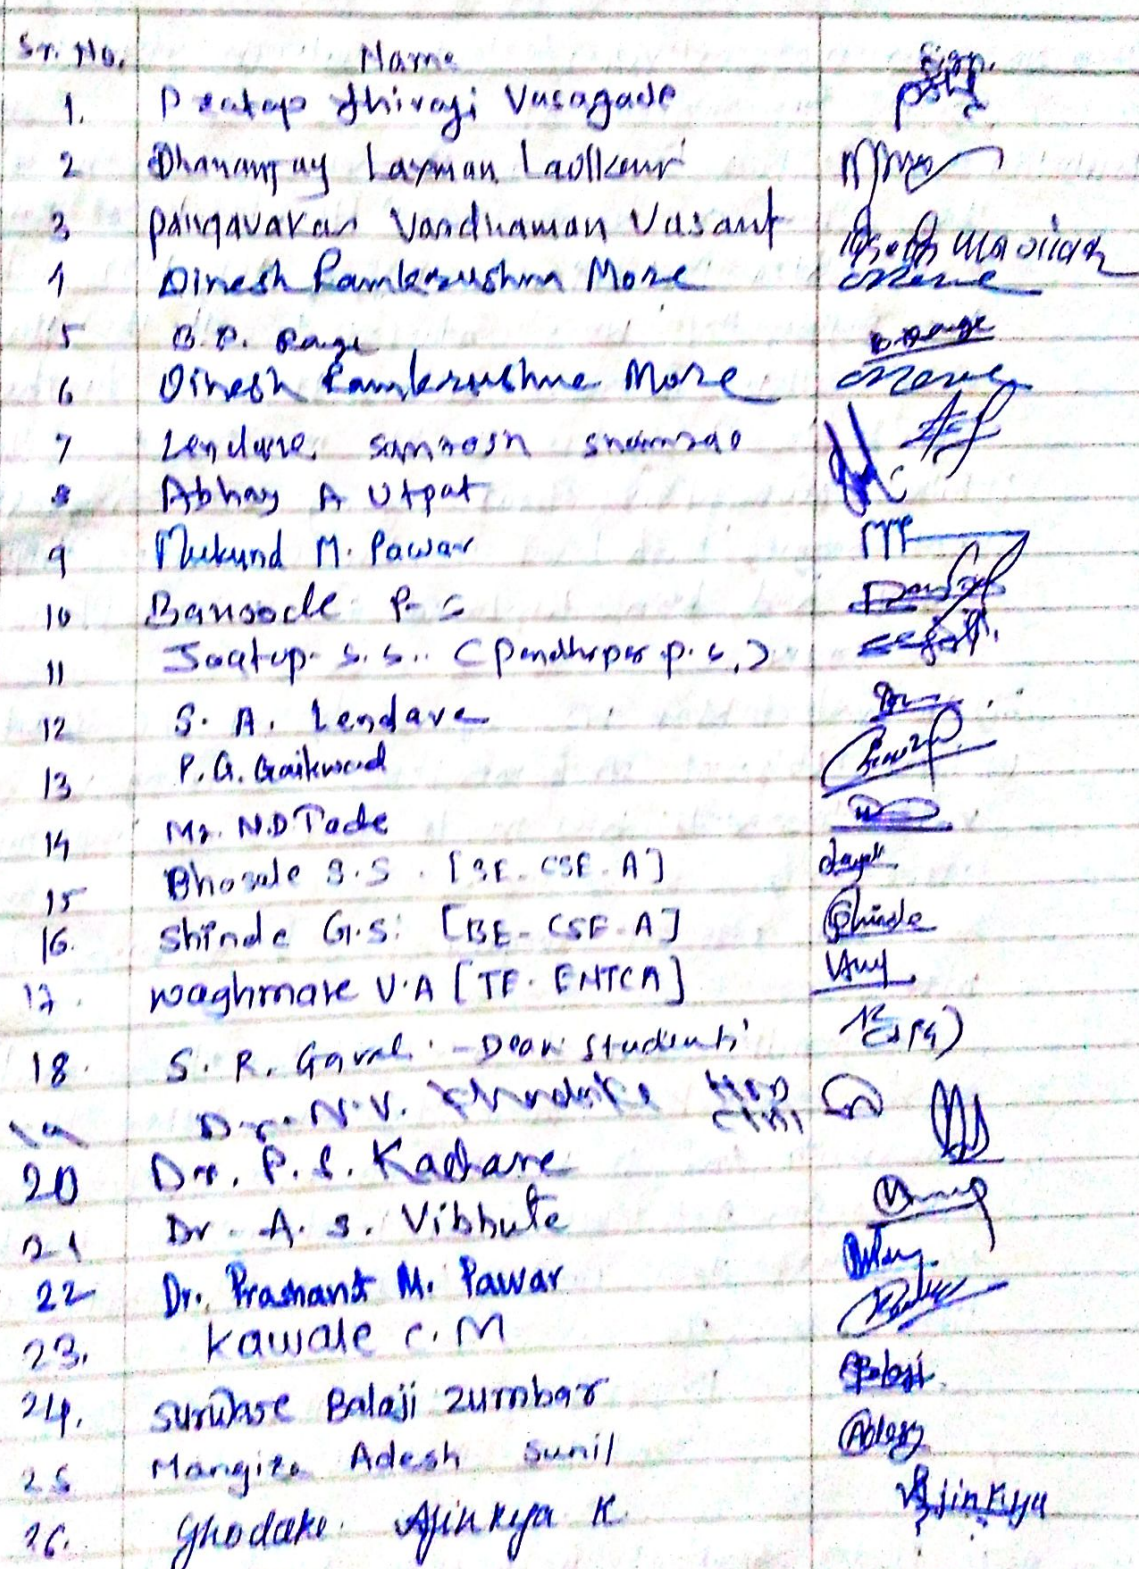 Sr. No. Name Sign.
1. Pratap Shivaji Vasagade
2 Dhananjay Laxman
3 Pangavakar Vardhaman Vasant
4 Dinesh Ramkrushna More More
5 B. P. Ronge B. P. Ronge
6 Dinesh Ramkrushna More More
7 Lendave Santosh Shamrao
8 Abhay A Utpat
9 Mukund M. Pawar
10 Bansode P. S
11 Jagtap S.S.. (Pandharpur p.s.)
12 S. A. Lendave
13 P. G. Gaikwad
14 Mr. N.D Tade
15 Bhosale S.S. [BE-CSE-A]
16. Shinde G.S. [BE-CSE-A] Shinde
17. Waghmare V.A [TE-ENTCA]
18. S. R. Gavali - Dean Students
19 Dr. N.V. HOD
20 Dr. P. S. Kachare
21 Dr. A. S. Vibhute
22 Dr. Prashant M. Pawar
23. Kawale C.M
24. Survase Balaji Zumbar Balaji
25 Mangire Adesh Sunil Adesh
26. Ghodake Ajinkya K. Ajinkya